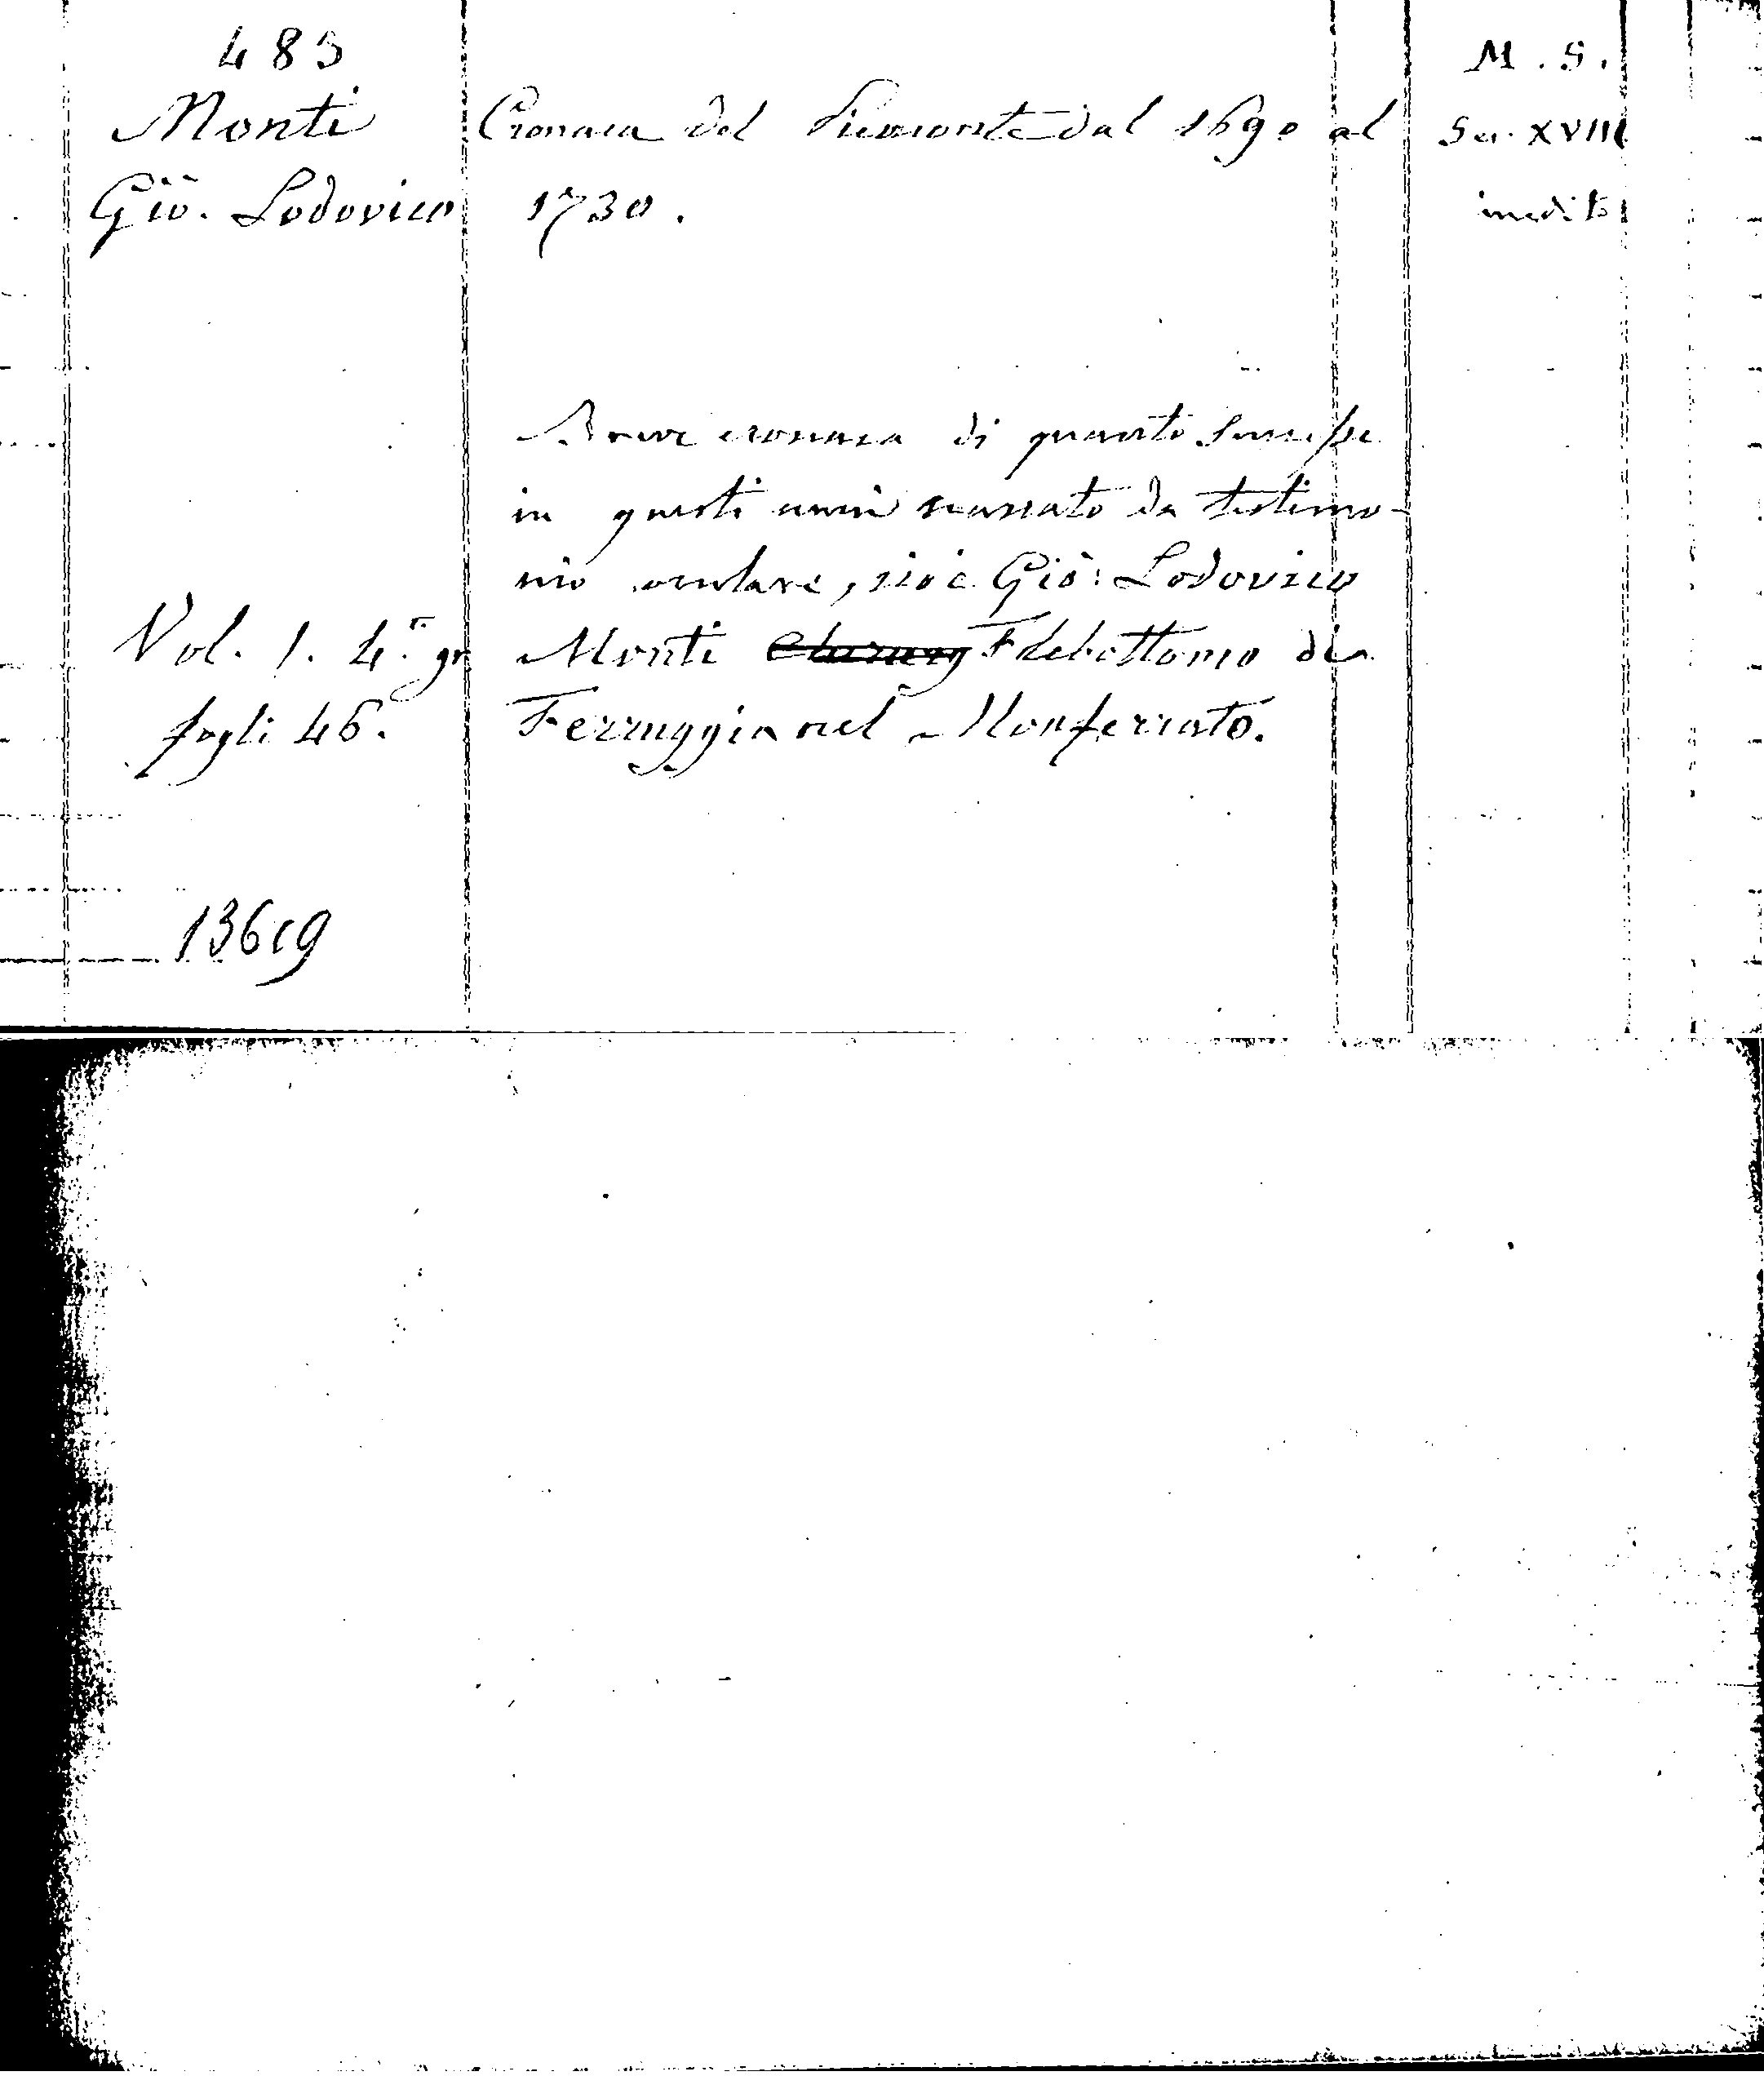 483
M. S.
Monti
Cronaca del Piemonte dal 1690 al
Sec. XVIII
Gio. Lodovico
1730.
inedito
Breve cronaca di quanto successe
in questi anni narrato da testimo-
nio oculare, cioè Gio: Lodovico
Vol. 1. 4.º gr
Monti Chirurg Flebottomo di
fogli 46.
Ferruggia nel Monferrato.
13619